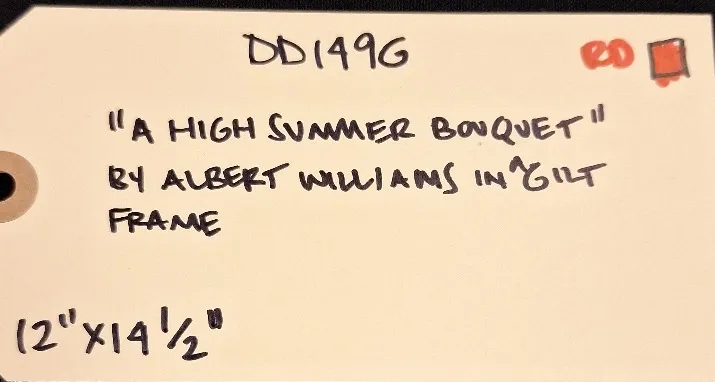 DD149G RD
"A HIGH SUMMER BOUQUET"
BY ALBERT WILLIAMS IN A GILT
FRAME
12" X 14 1/2"